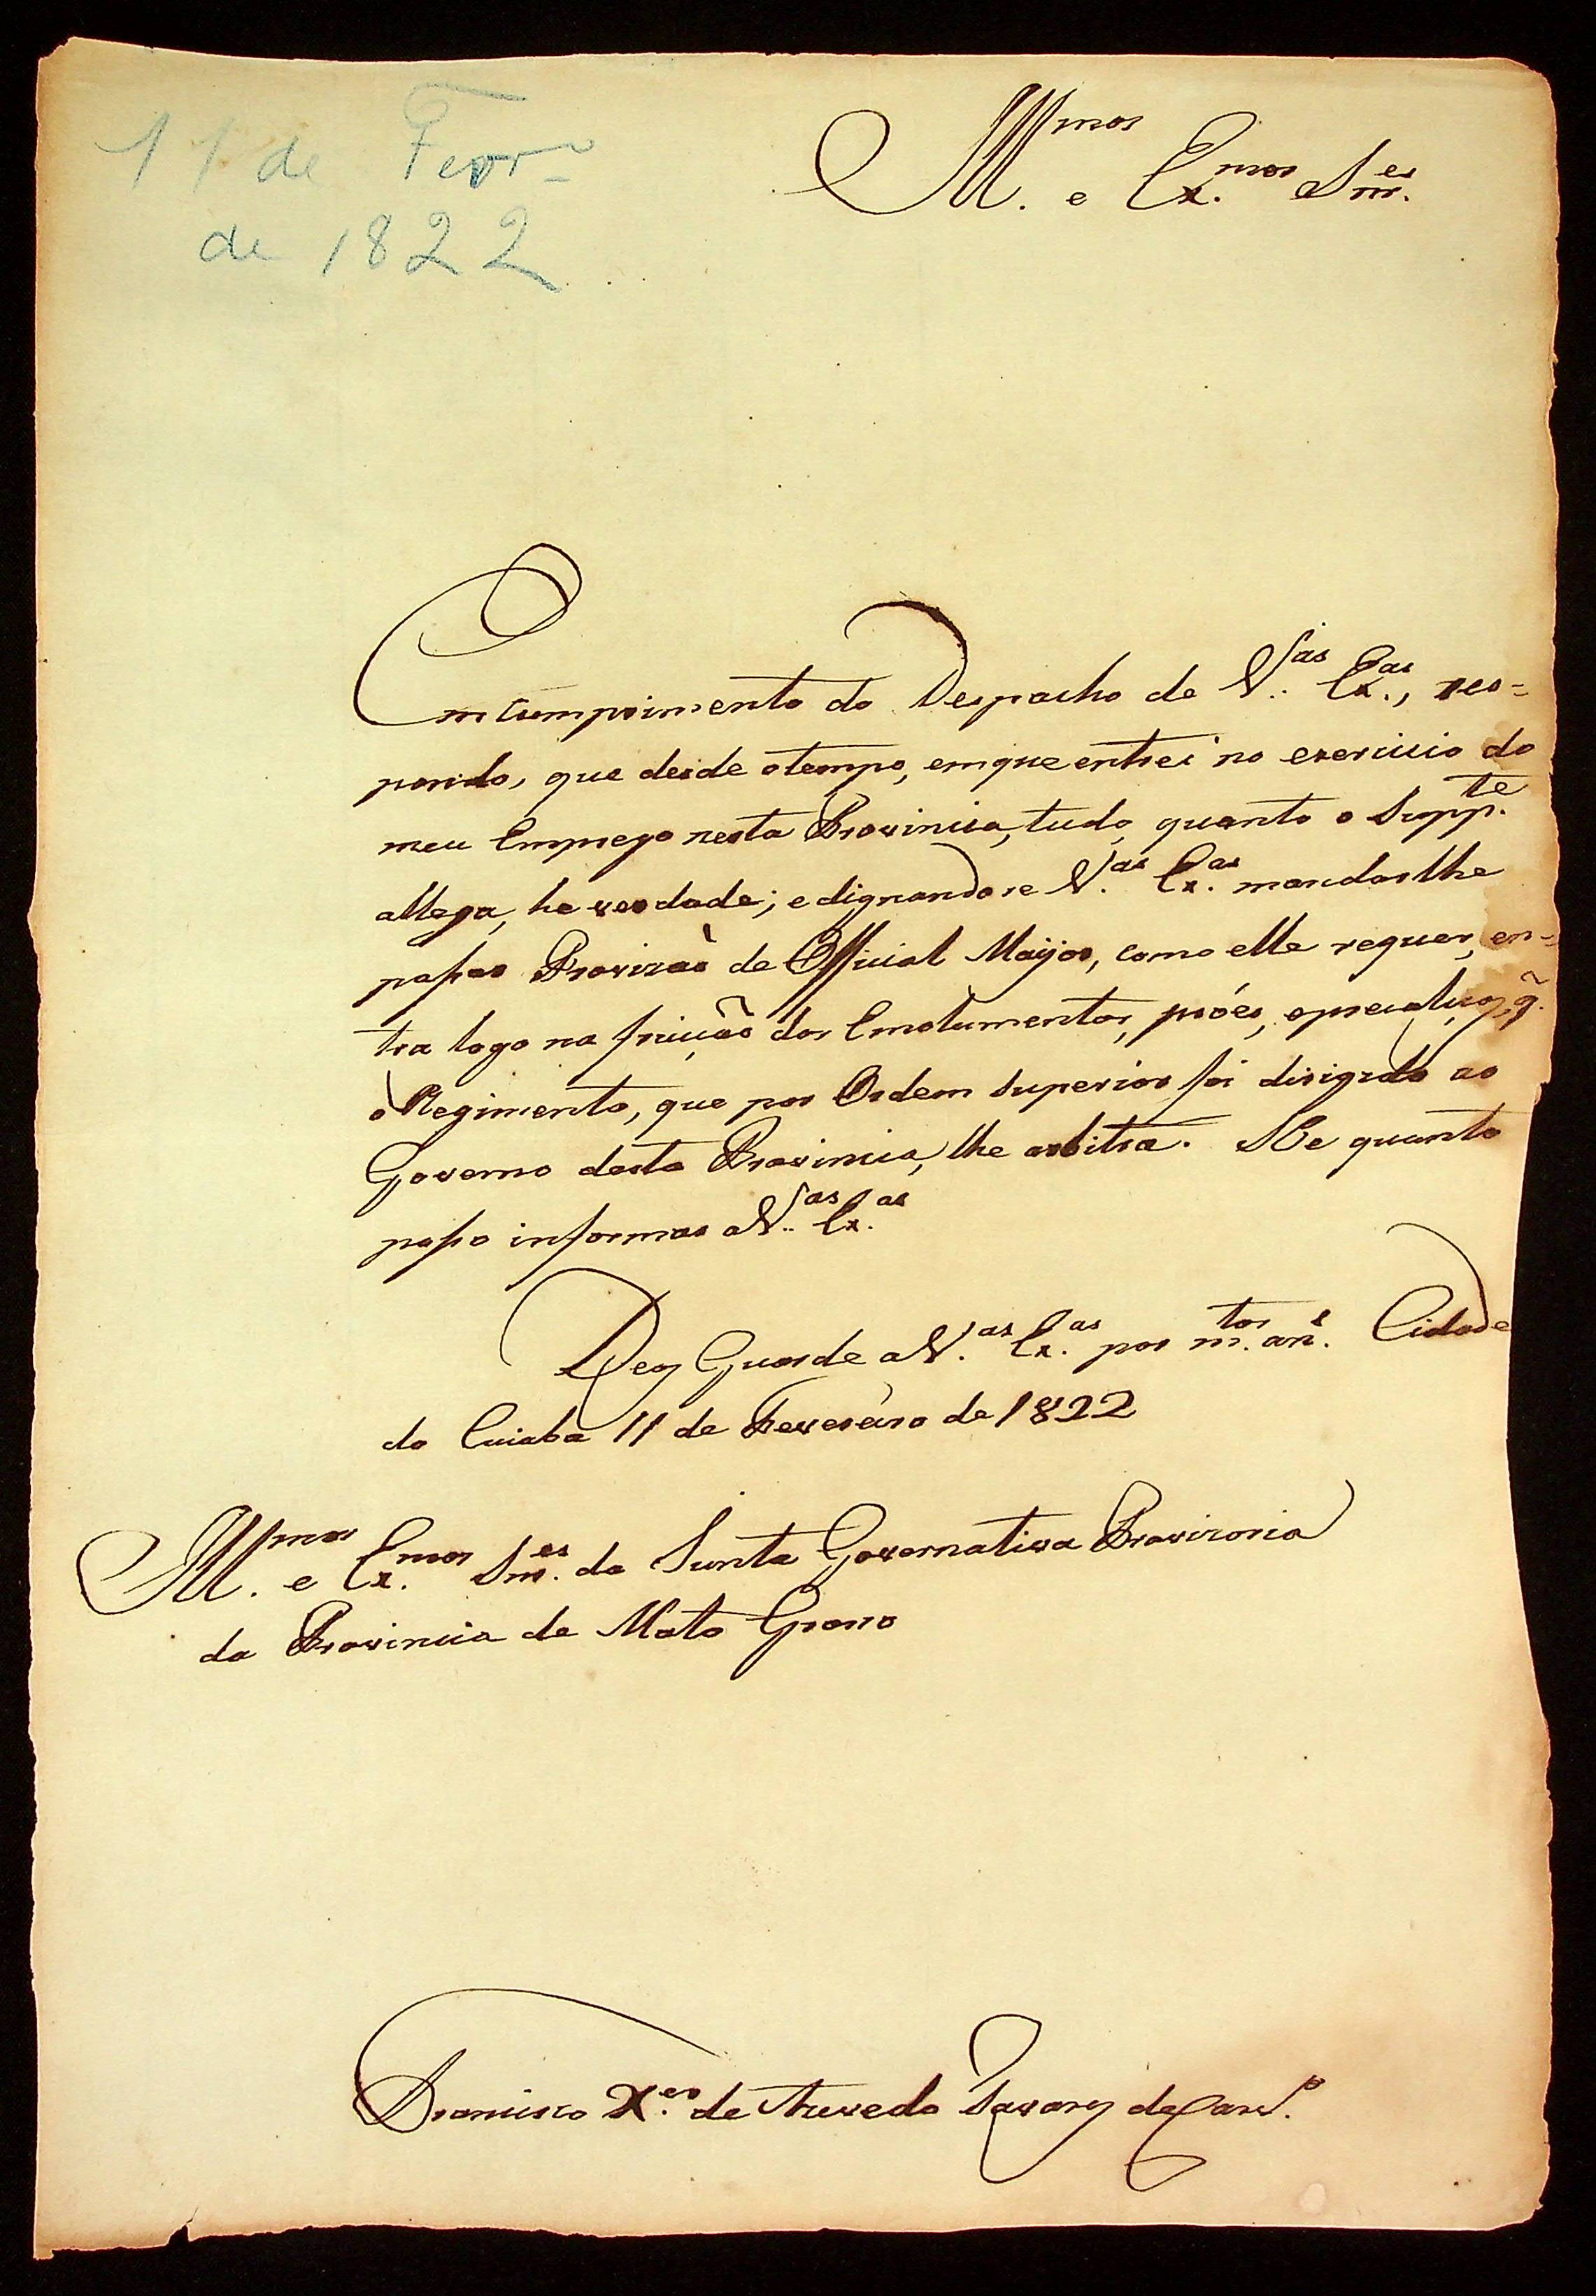 11 de Fevr.º
de 1822
Ill.mos e Ex.mos Snr.es
Em cumprimento do Despacho de V.as Ex.as, res-
pondo, que desde otempo, emque entrei no exercicio do
meu Emprego nesta Provincia, tudo, quanto o Supp.te
allega, he verdade; e dignandose V.as Ex.as mandarlhe
passar Provizaõ de Official Mayor, como elle requer, en-
tra logo na fruiçaõ dos Emolumentos, próes, eprecalços, q̃.
o Regimento, que por Ordem Superior foi dirigido ao
Governo desta Provincia, lhe arbitra. He quanto
posso informar aV.as Ex.as
Deos Guarde aV.as Ex.as por m.tos an.s Cidade
do Cuiaba 11 de Fevereiro de 1822
Ill.mos e Ex.mos Snr.es da Junta Governativa Provizoria
da Provincia de Mato Grosso
Francisco X.er de Azevedo Tavares de Carv.º